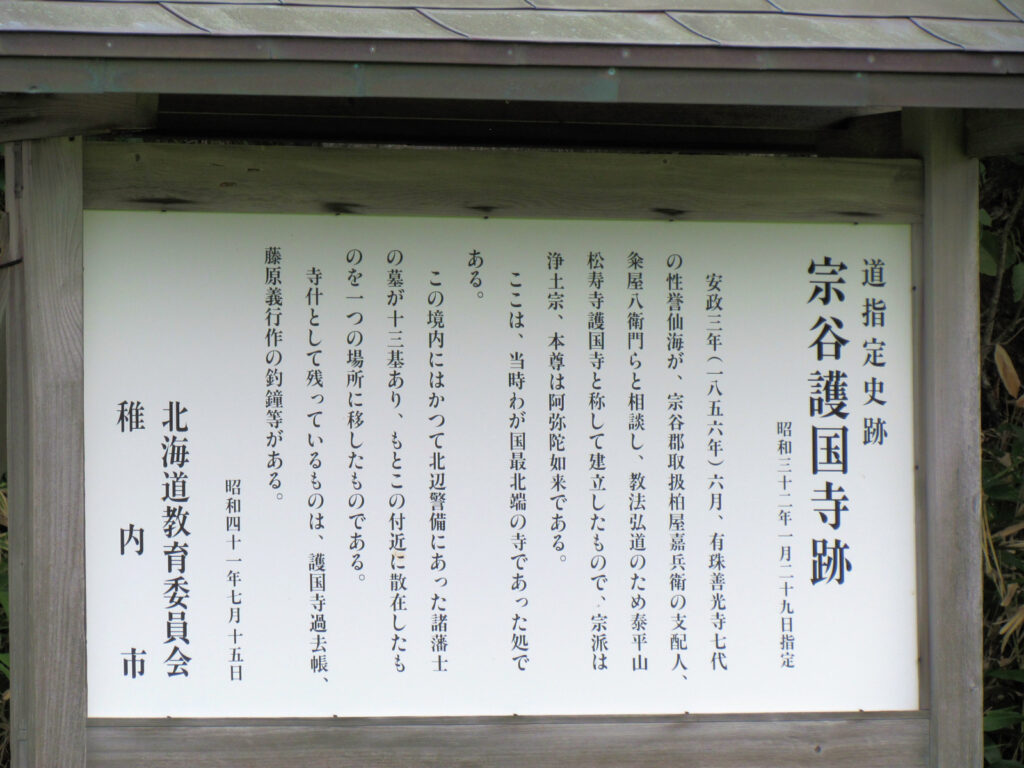 道指定史跡
宗谷護国寺跡
昭和三十二年一月二十九日指定
安政三年(一八五六年)六月、有珠善光寺七代
の性誉仙海が、宗谷郡取扱柏屋嘉兵衛の支配人、
粂屋八衛門らと相談し、教法弘道のため泰平山
松寿寺護国寺と称して建立したもので、宗派は
浄土宗、本尊は阿弥陀如来である。
ここは、当時わが国最北端の寺であった処で
ある。
この境内にはかつて北辺警備にあった諸藩士
の墓が十三基あり、もとこの付近に散在したも
のを一つの場所に移したものである。
寺什として残っているものは、護国寺過去帳、
藤原義行作の釣鐘等がある。
昭和四十一年七月十五日
北海道教育委員会
稚内市